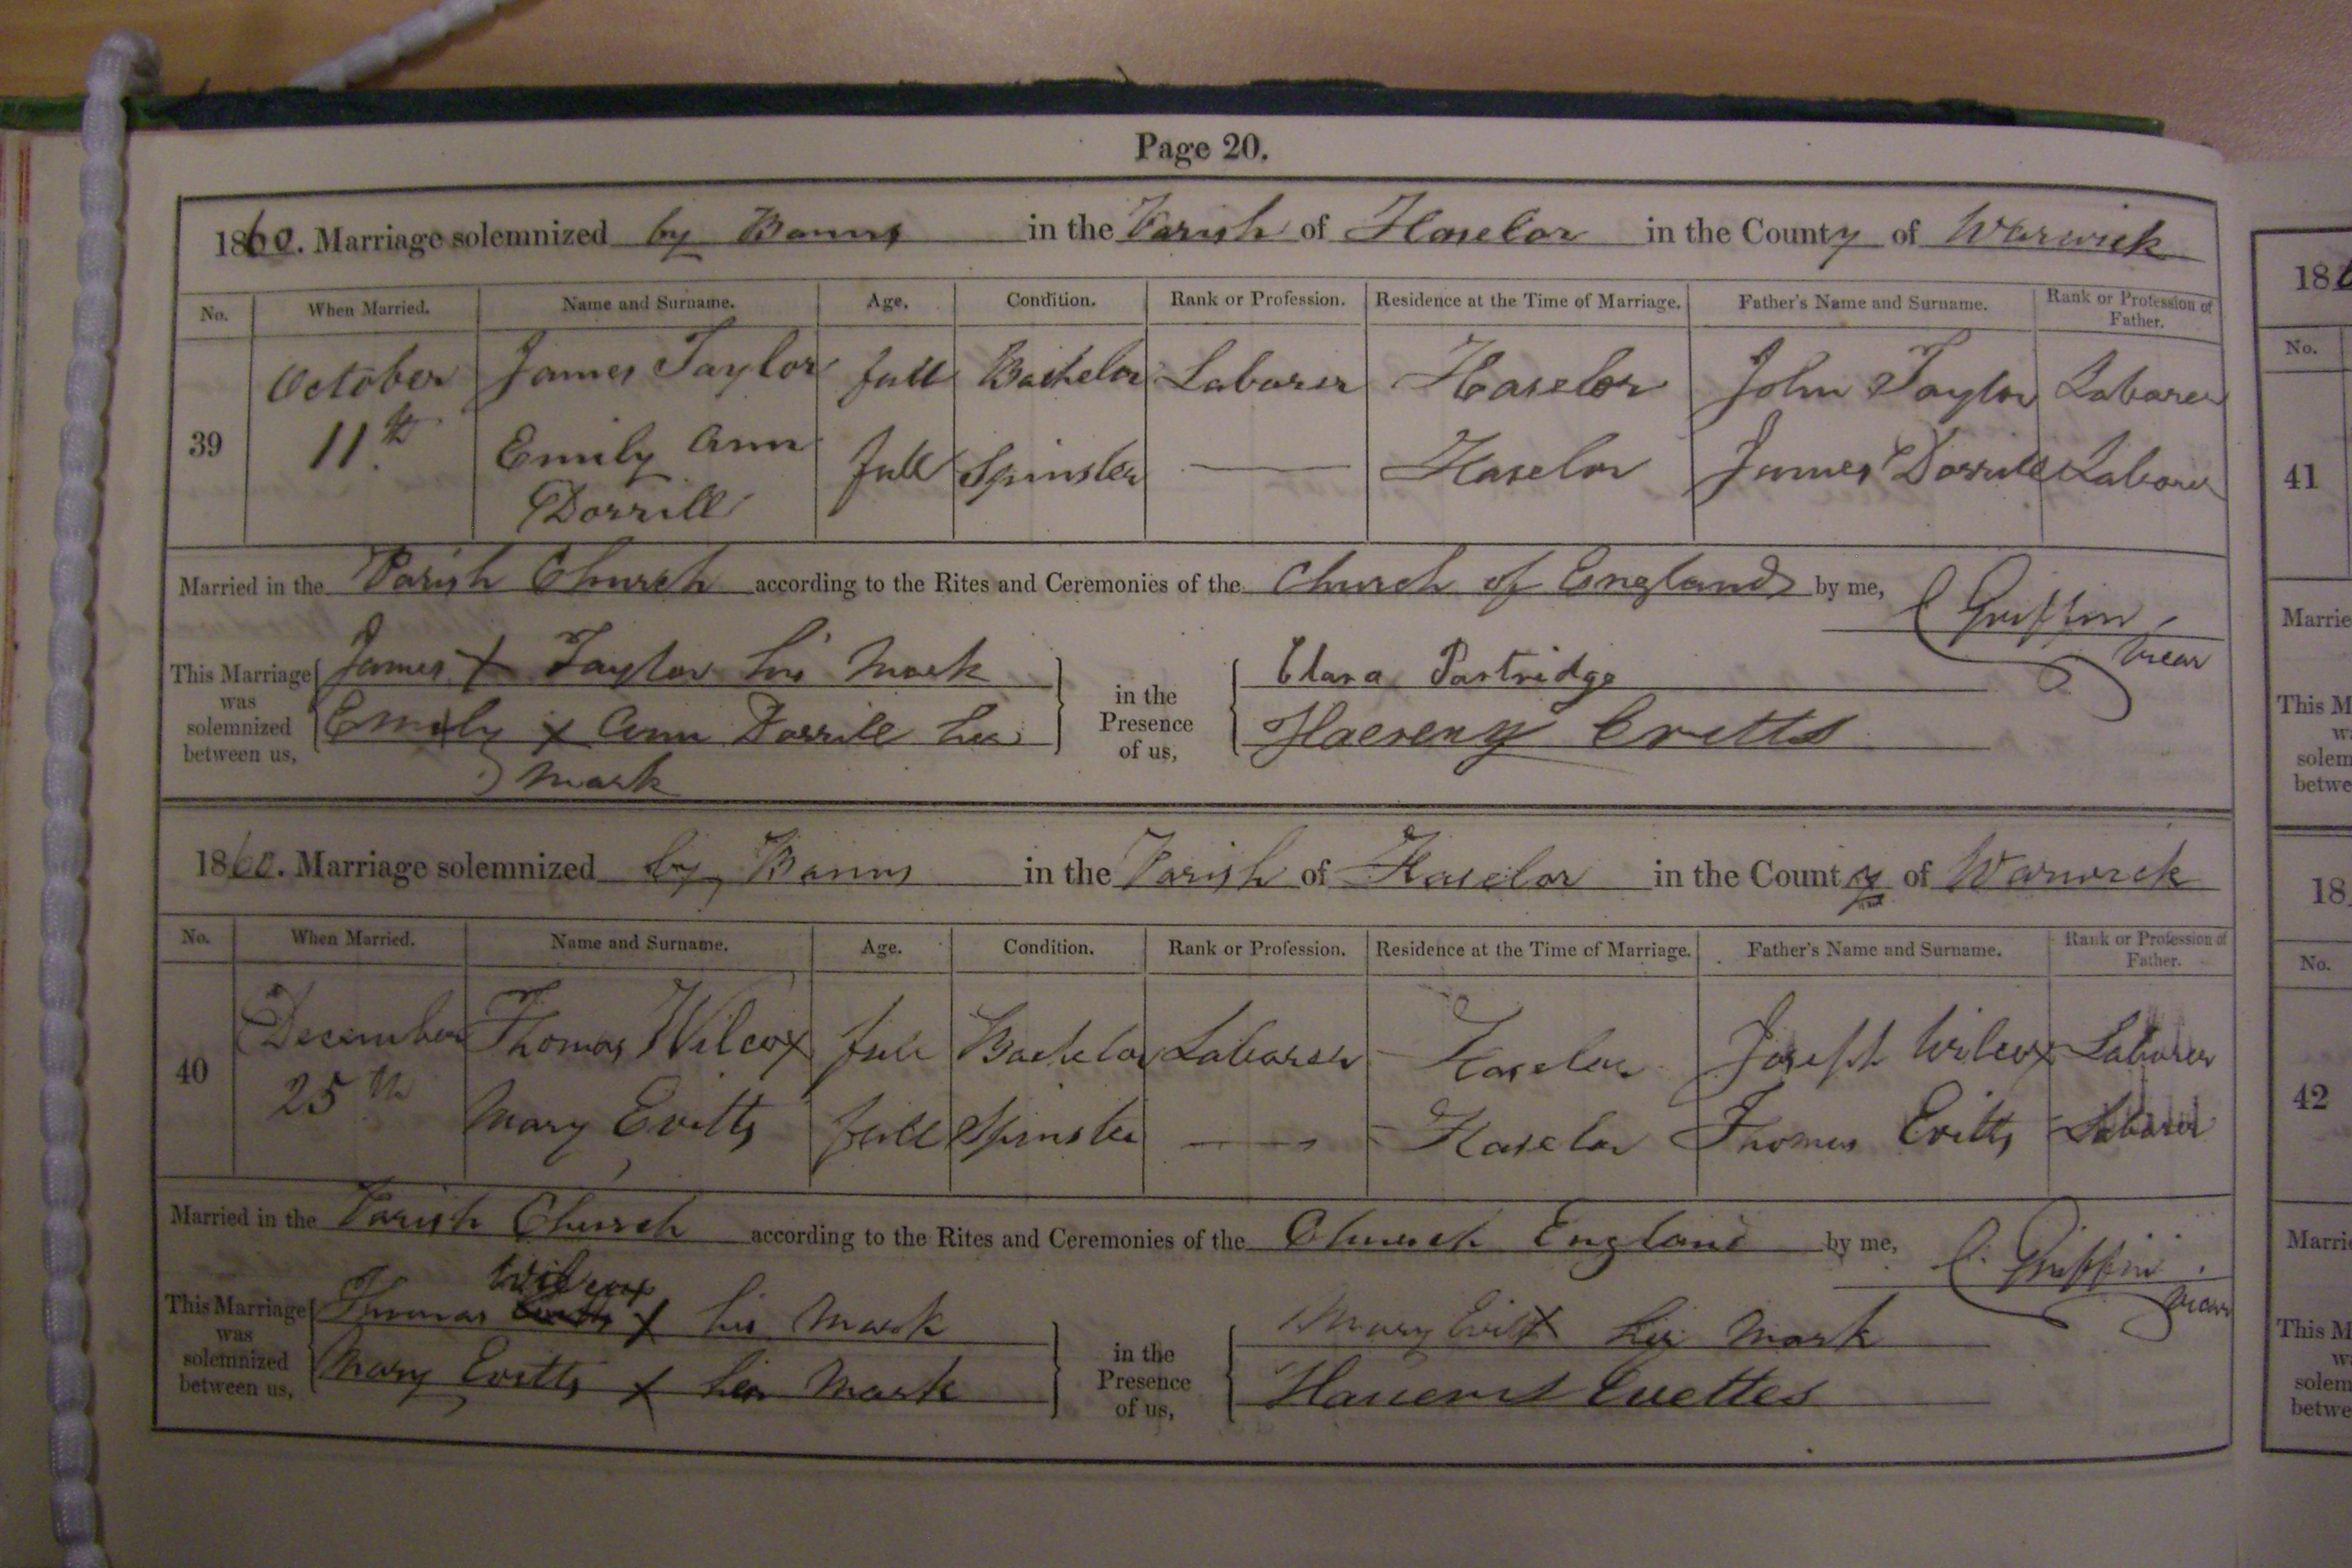 Page 20.
1860. Marriage solemnized by Banns in the Parish of Haselor in the County of Warwick
No. When Married. Name and Surname. Age. Condition. Rank or Profession. Residence at the Time of Marriage. Father's Name and Surname. Rank or Profession of Father.
October James Taylor full Bachelor Laborer Haselor John Taylor Laborer
39 11th Emily Ann Dorrill full Spinster — Haselor James Dorrill Laborer
Married in the Parish Church according to the Rites and Ceremonies of the Church of England by me, C Griffin Vicar
This Marriage was solemnized between us, James X Taylor his Mark
Emily X Ann Dorrill her mark
in the Presence of us, Clara Partridge
Evitts
1860. Marriage solemnized by Banns in the Parish of Haselor in the County of Warwick
No. When Married. Name and Surname. Age. Condition. Rank or Profession. Residence at the Time of Marriage. Father's Name and Surname. Rank or Profession of Father.
December Thomas Wilcox full Bachelor Laborer Haselor Joseph Wilcox Laborer
40 25th Mary Evitts full Spinster — Haselor Thomas Evitts Laborer
Married in the Parish Church according to the Rites and Ceremonies of the Church England by me, C. Griffin Vicar
This Marriage was solemnized between us, Thomas Wilcox X his Mark
Mary Evitts X her Mark
in the Presence of us, Mary Evitt X her Mark
Evettes
18
No.
41
Marrie
This M
wa
solem
betwe
18
No.
42
Marri
This M
wa
solem
betwe